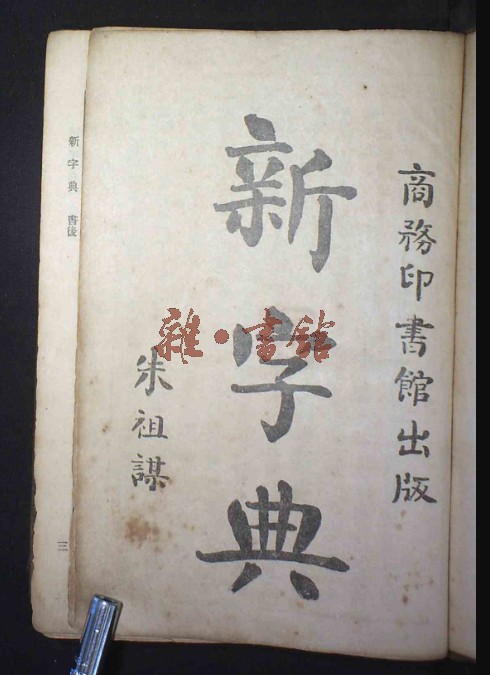 商務印書館出版
新字典
朱祖謀
雜·書館
新字典 書後
三